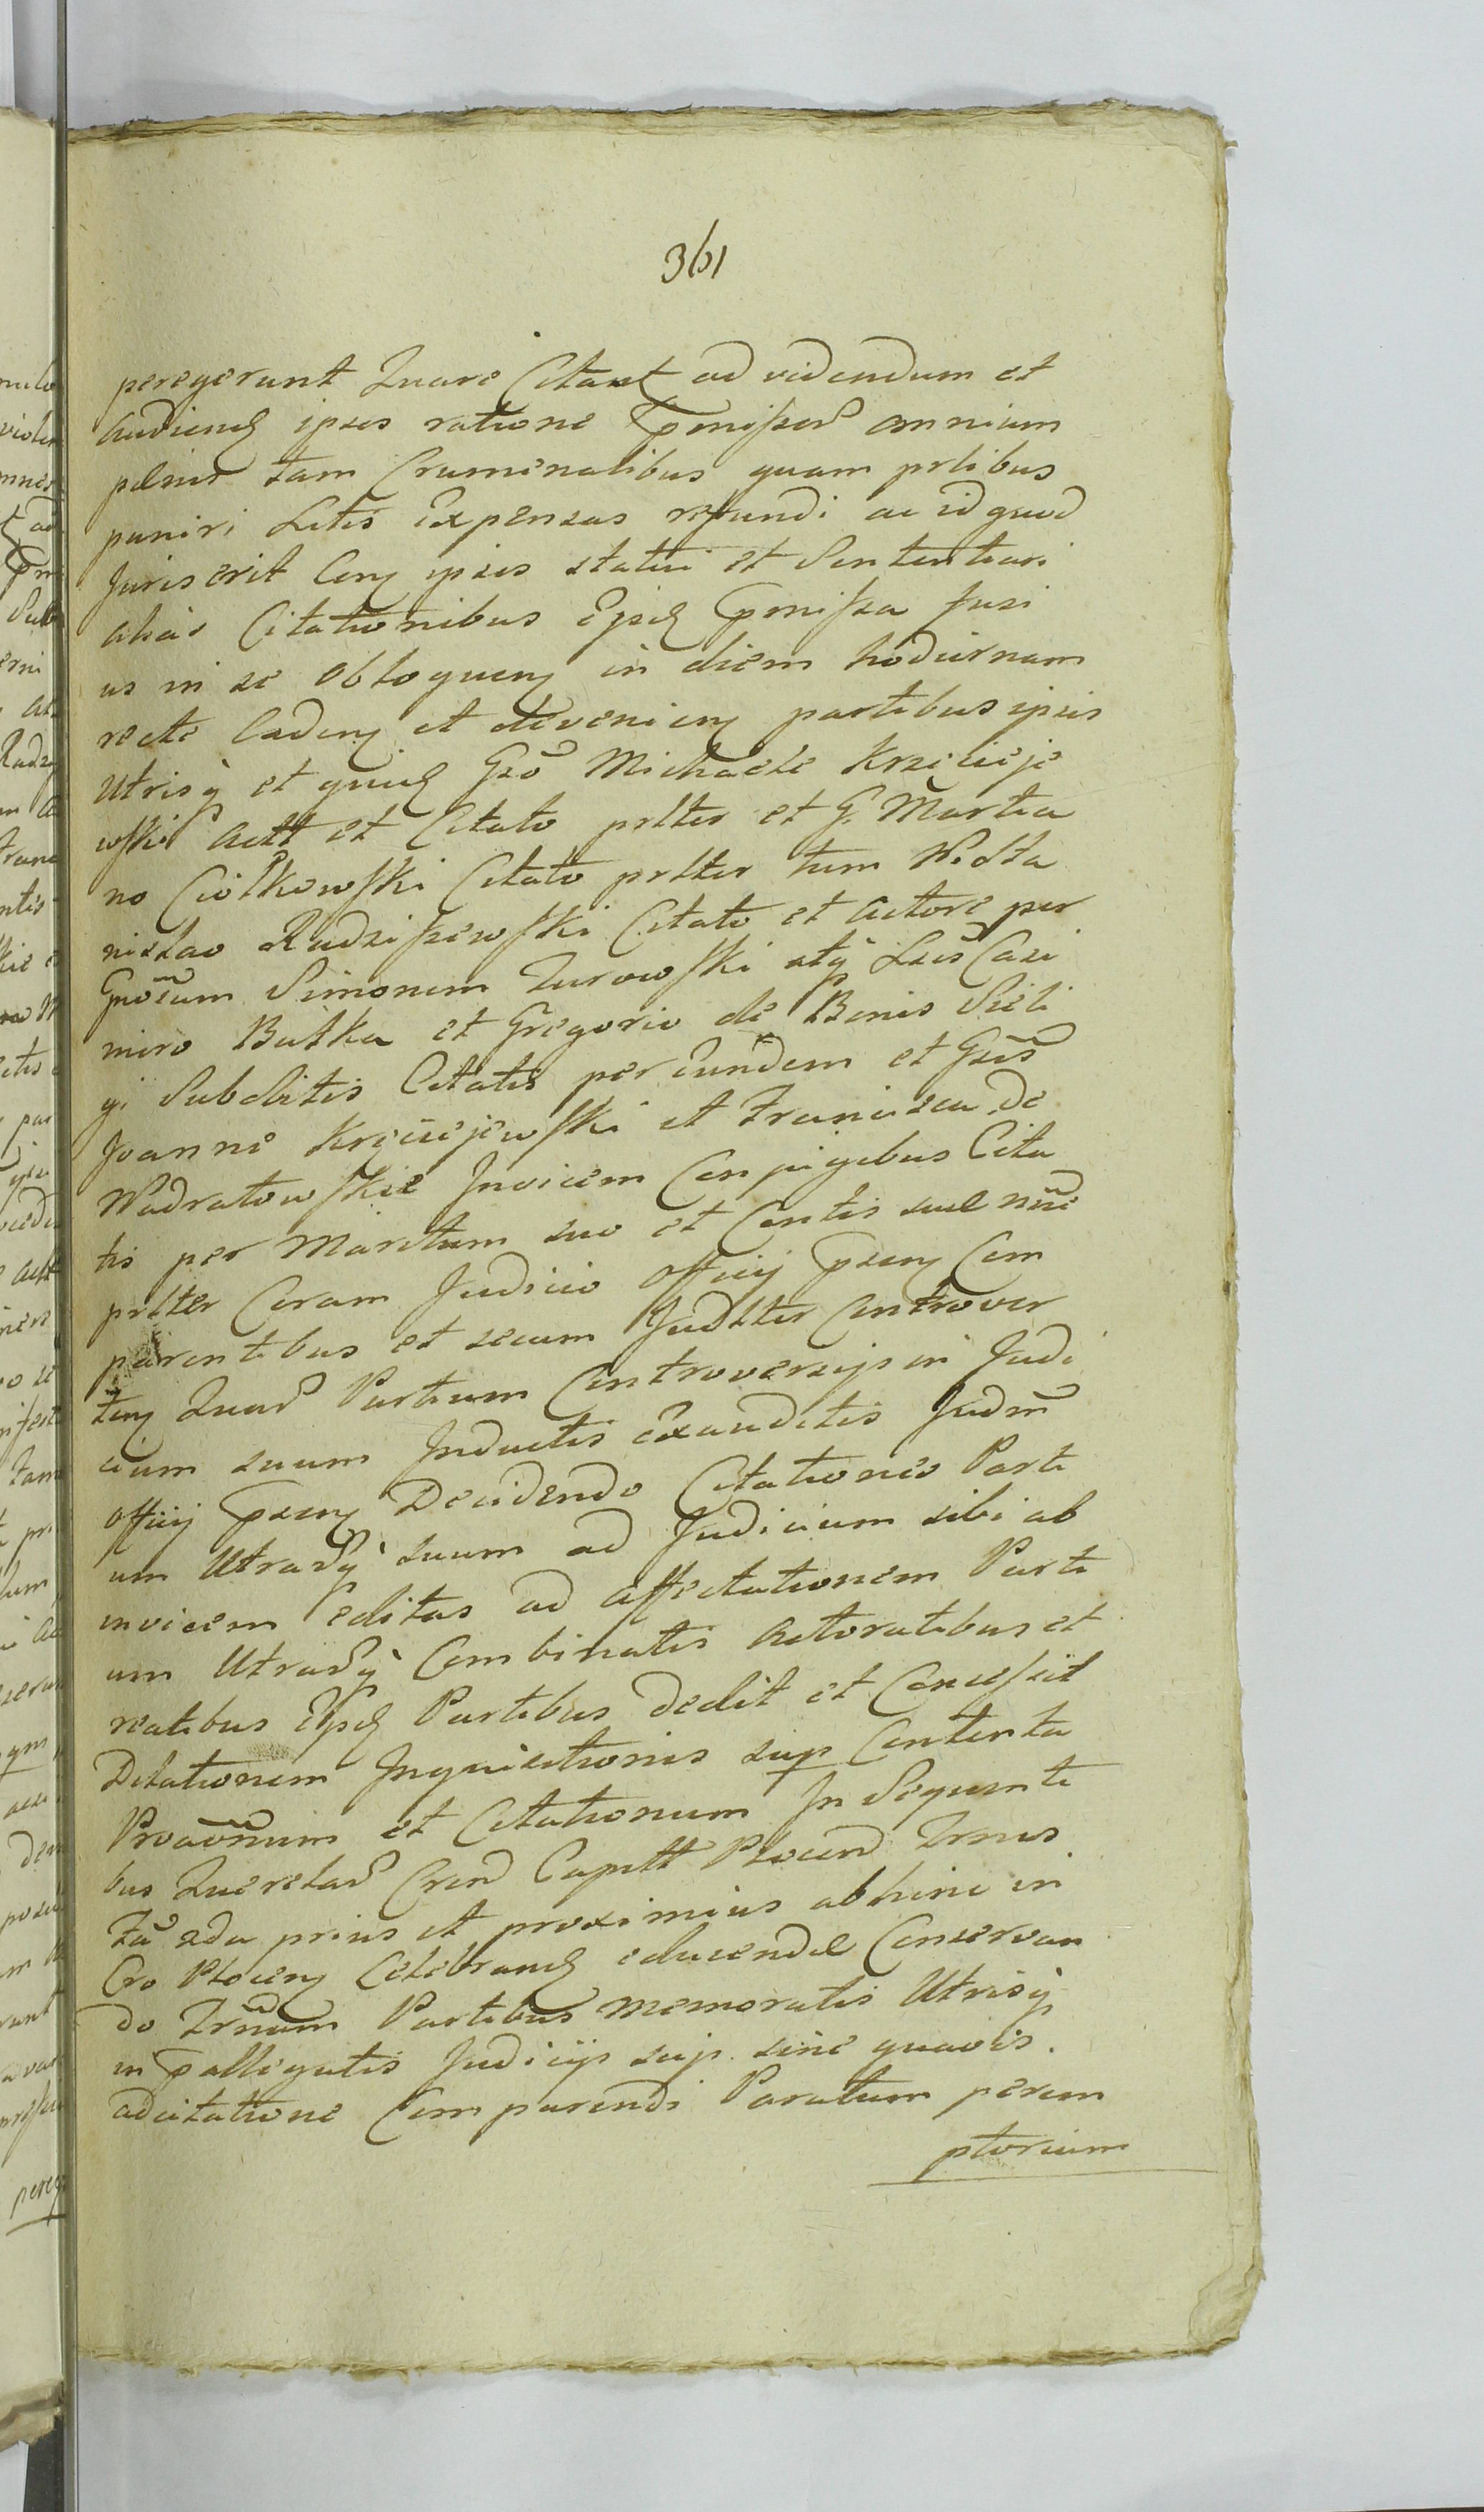 361
peregerunt Quare Citant ad videndum et
audiend ipsos ratione Pmissor omnium
penis tam Criminalibus quam pnlibus
puniri Litis Expensas refundi ac id quod
Juris erit Cong ipsis statui et Sententiari
alias Citationibus Ejsd Pmissa fusi
us in se obloquen in diem hodiernam
recte Caden et devenien partibus ipsis
Utrisq et quid Gso Michaele Krzcieje
wski Actt et Citato pnlter et G. Martia
no Ciołkowski Citato pnlter tum Ndo Sta
nislao Radziszewski Citato et Actore per
Gnosum Simonem Zurowski atq Lsis Casi
miro Butka et Gregorio de Bonis Sieli
gi Subditis Citatis per Eundem et Gsis
Joanne Krzciejewski et Francisca de
Nadratowskie Invicem Conjugibus Cita
tis per Maritum suo et Contis suae nne
pnlter Coram Judicio Officij Psen Com
parentibus et secum Judlter Controver
ten Quar Partium Controversijs in Judi
cium suum Inductis exauditis Judm
Officij Psen Decidendo Citationes Parti
um Utrarq suum ad Judicium sibi ab
invicem editas ad Affectationem Parti
um Utrarq Combinatis Actoratibus et
reatibus Ejsd Partibus dedit et Concessit
Dilationem Inquisitionis sup Contenta
Proaonum et Citationum In Sequenti
bus Querelar Crend Capitt Plocen Trnis
Fa 2da prius et proximius abhinc in
Cro Plocen Celebrand educendae Conservan
do Trnum Partibus memoratis Utrisq
in Pallegatis Judicijs sup. sine quavis.
adcitatione Comparendi Paratum perem
ptorium